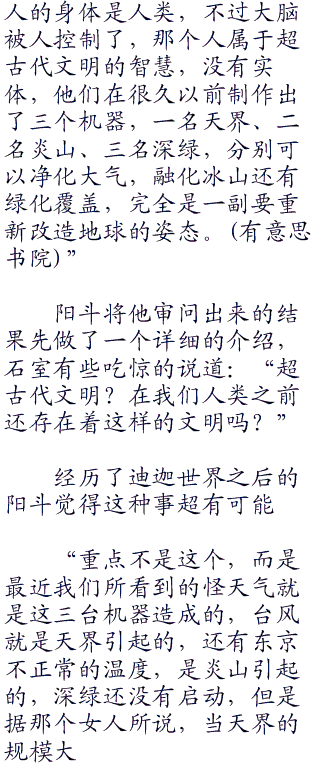 人的身体是人类，不过大脑
被人控制了，那个人属于超
古代文明的智慧，没有实
体，他们在很久以前制作出
了三个机器，一名天界、二
名炎山、三名深绿，分别可
以净化大气，融化冰山还有
绿化覆盖，完全是一副要重
新改造地球的姿态。(有意思
书院)”
阳斗将他审问出来的结
果先做了一个详细的介绍，
石室有些吃惊的说道：“超
古代文明？在我们人类之前
还存在着这样的文明吗？”
经历了迪迦世界之后的
阳斗觉得这种事超有可能
“重点不是这个，而是
最近我们所看到的怪天气就
是这三台机器造成的，台风
就是天界引起的，还有东京
不正常的温度，是炎山引起
的，深绿还没有启动，但是
据那个女人所说，当天界的
规模大